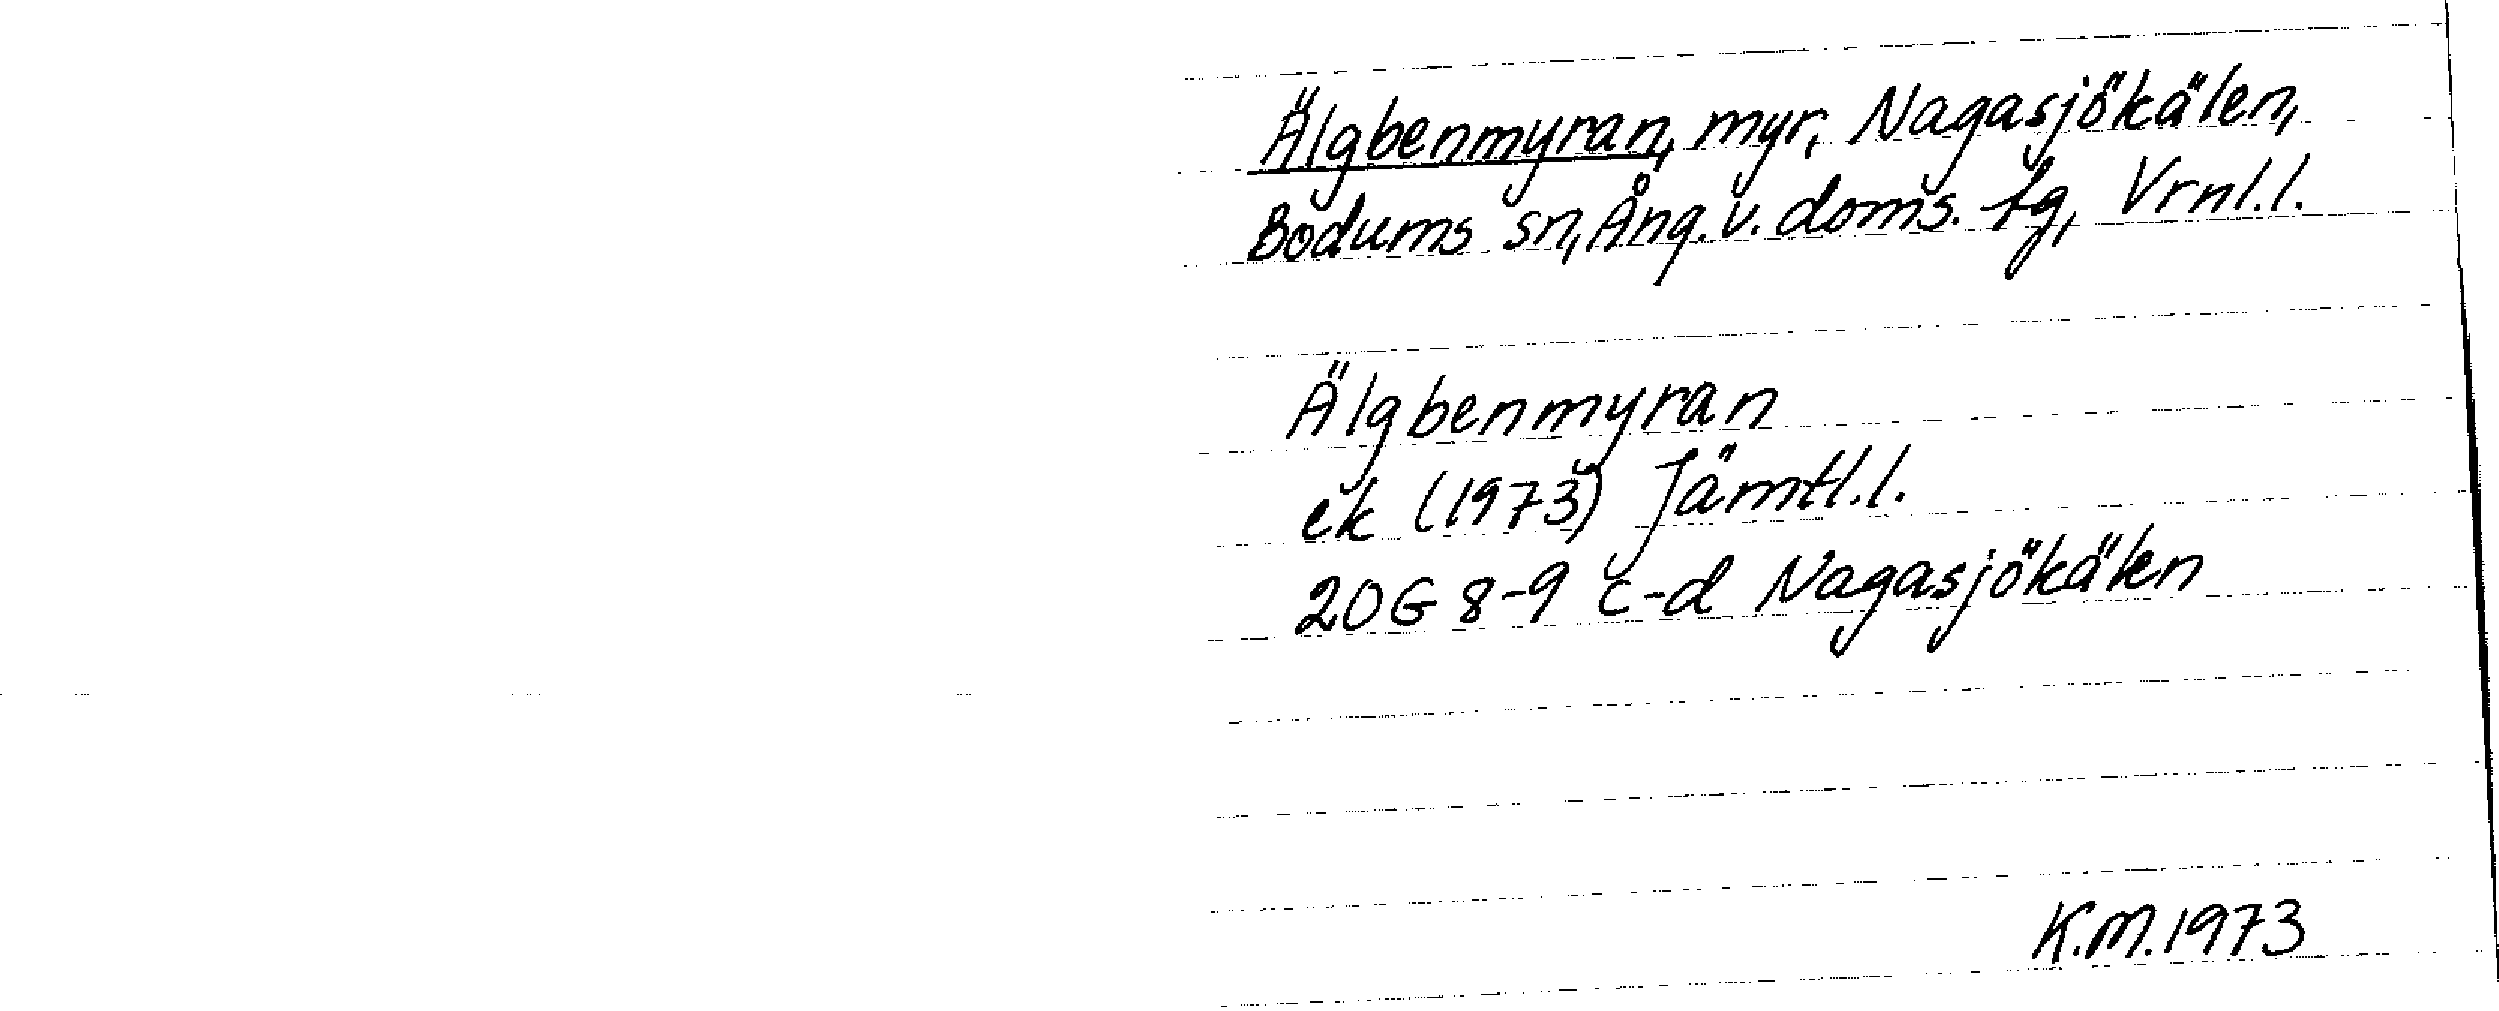 Älgbenmyran, myr, Nagasjökälen,
Bodums sn, Ång. v. doms. tg, Vrnl.l.
Älgbenmyran
ek (1973) Jämtl.l.
20G 8-9 c-d Nagasjökälen
K.M. 1973